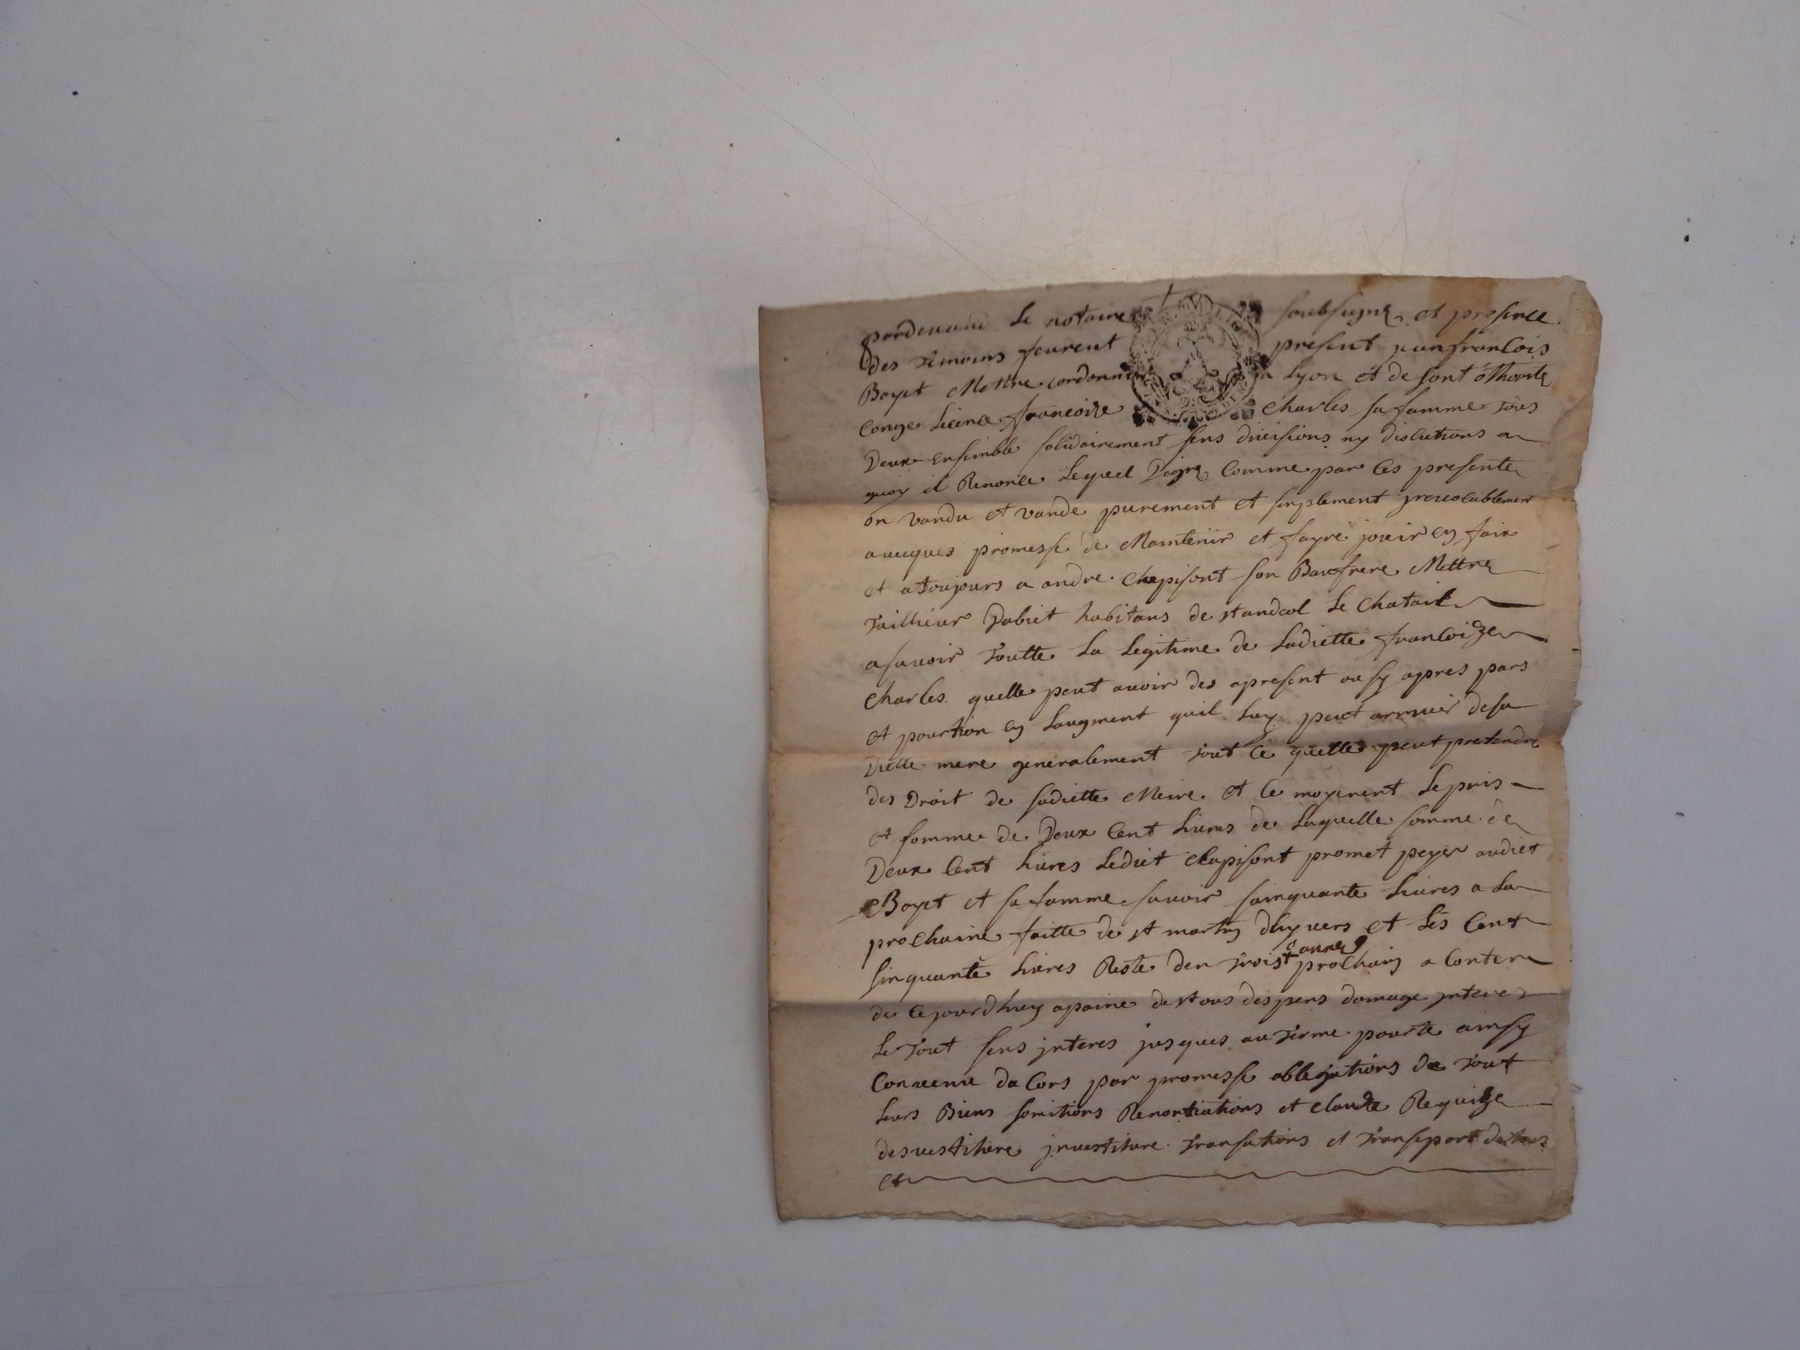 pardevand Le notaire soubsigne et presence
des temoins feurent present jean francois
Boyet Mettre cordonnier a Lyon et de sont othorite
Conge Licence francoize Charles sa famme tous
Deux Ensimble solidairement sens divisions ny discutions a
quoy il Renonce Lequel Degre Comme par Ces presente
on vandu et vande purement et simplement jrevocablement
avecques promesse de Maintenir et fayre jouir en faix
et a toujours a andre Chapisont son Baufrere Mettre
tailleur Dabiet habitans de st andeol Le Chatail
a savoir toutte La Legitime de Ladiette francoize
Charles quelle peut avoir des apresent ou sy apres pars
et pourtion en Laugment quil Luy peut arriver de sa
Diette mere generalement tout Ce quelle peut pretendre
des Droit de sadiette Meire et Ce moyenent Le pris
et somme de Deux Cent Livres de Laquelle somme de
Deux Cent Livres Lediet Chapisont promet peyer audiet
Boyet et sa famme savoir sainquante Livres a La
prochaine faitte de st martin dhyvers et Les Cent
sinquante Livres Reste den trois annes prochain a Conter
de Cejourdhuy apaine de tous despens domage jnteres
Le tout sens jnteres jusques au terme porte ainsy
Convenu daCors par promesse obligations de tout
Leurs Biens somitions Renontiations et Clauze Requize
desvestiture jnvestiture transations et transport de tous
et